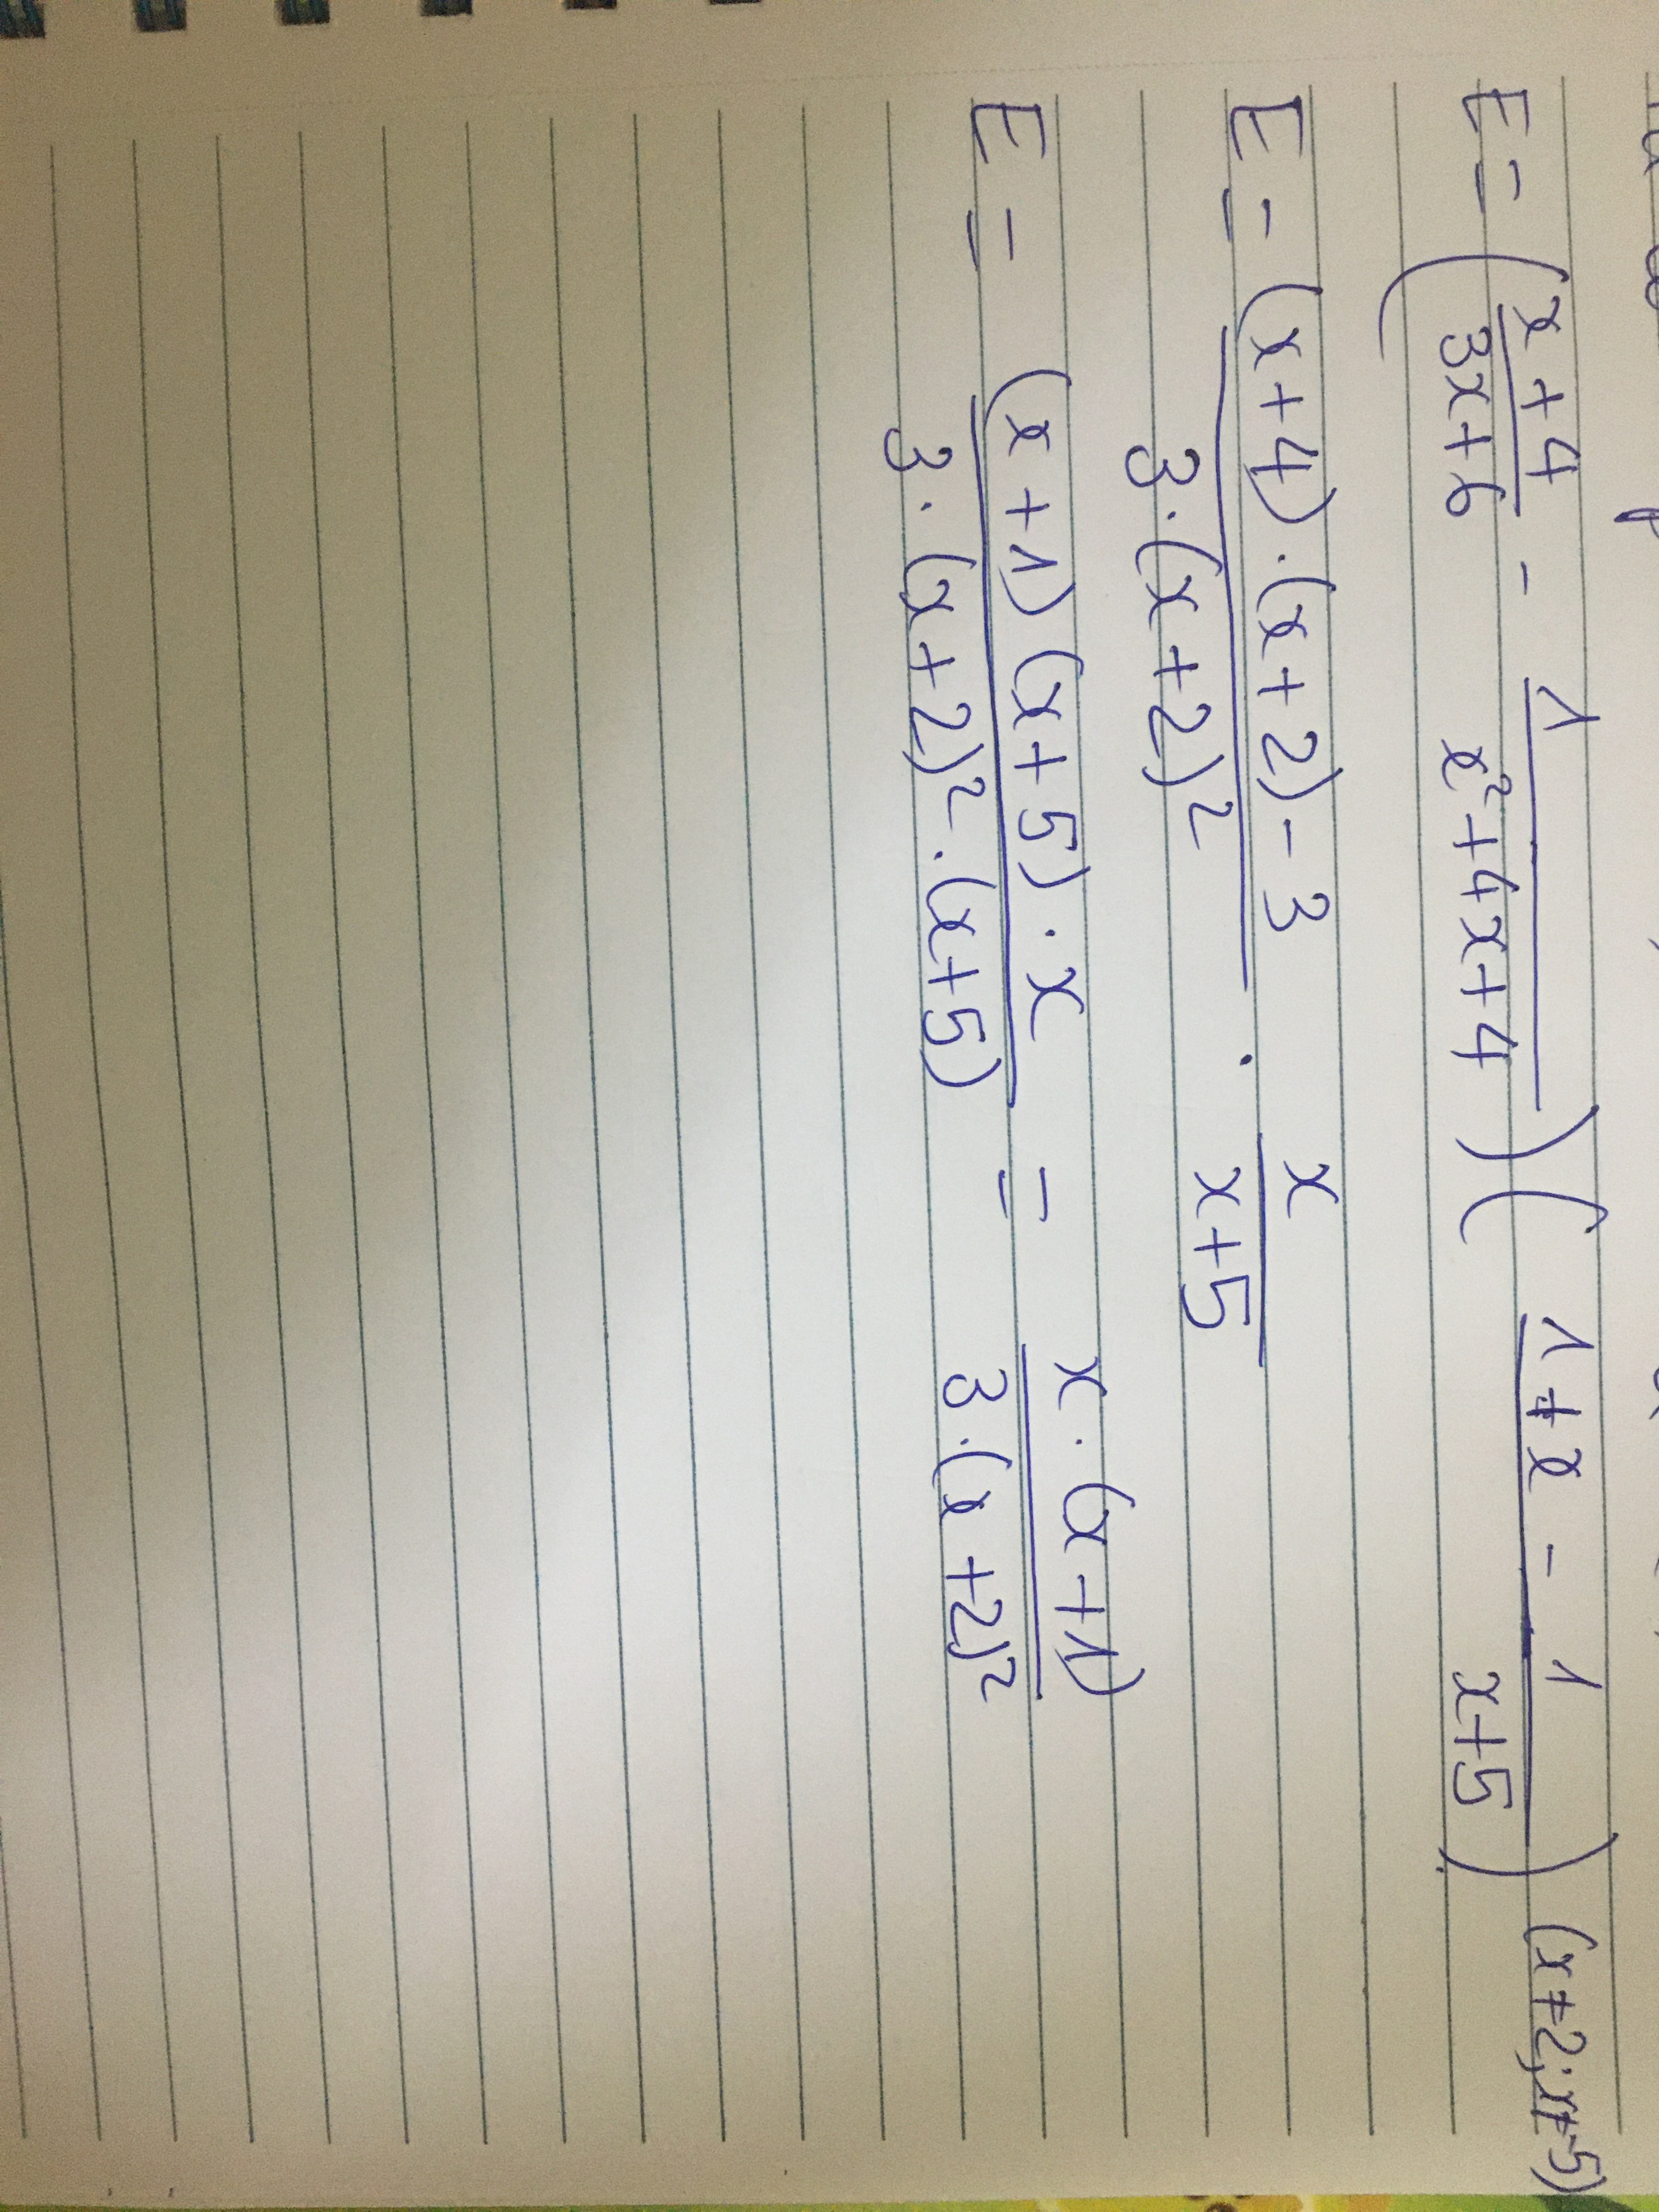 E = ( \frac{x+4}{3x+6} - \frac{1}{x²+4x+4} ) ( \frac{1+x-1}{x+5} ) (x≠2; x≠-5)
E = \frac{(x+4)·(x+2)-3}{3·(x+2)²} · \frac{x}{x+5}
E = \frac{(x+1)(x+5)·x}{3·(x+2)²·(x+5)} = \frac{x·(x+1)}{3·(x+2)²}